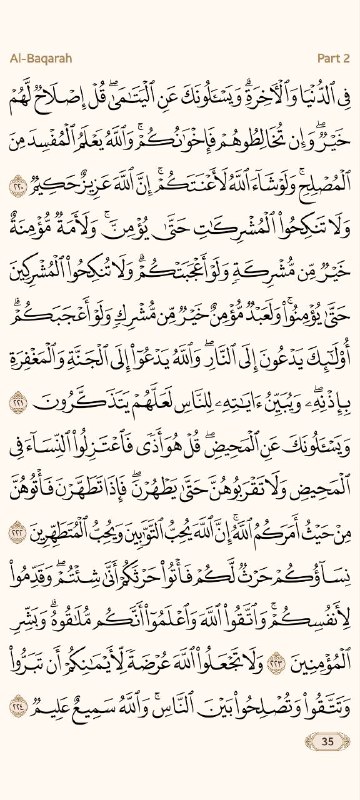 Al-Baqarah
Part 2
فِى ٱلدُّنْيَا وَٱلْـَٔاخِرَةِ ۗ وَيَسْـَٔلُونَكَ عَنِ ٱلْيَتَـٰمَىٰ ۖ قُلْ إِصْلَاحٌ لَّهُمْ
خَيْرٌ ۖ وَإِن تُخَالِطُوهُمْ فَإِخْوَٰنُكُمْ ۚ وَٱللَّهُ يَعْلَمُ ٱلْمُفْسِدَ مِنَ
ٱلْمُصْلِحِ ۚ وَلَوْ شَآءَ ٱللَّهُ لَأَعْنَتَكُمْ ۚ إِنَّ ٱللَّهَ عَزِيزٌ حَكِيمٌ ٢٢٠
وَلَا تَنكِحُوا۟ ٱلْمُشْرِكَـٰتِ حَتَّىٰ يُؤْمِنَّ ۚ وَلَأَمَةٌ مُّؤْمِنَةٌ
خَيْرٌ مِّن مُّشْرِكَةٍ وَلَوْ أَعْجَبَتْكُمْ ۗ وَلَا تُنكِحُوا۟ ٱلْمُشْرِكِينَ
حَتَّىٰ يُؤْمِنُوا۟ ۚ وَلَعَبْدٌ مُّؤْمِنٌ خَيْرٌ مِّن مُّشْرِكٍ وَلَوْ أَعْجَبَكُمْ ۗ
أُو۟لَـٰٓئِكَ يَدْعُونَ إِلَى ٱلنَّارِ ۖ وَٱللَّهُ يَدْعُوٓا۟ إِلَى ٱلْجَنَّةِ وَٱلْمَغْفِرَةِ
بِإِذْنِهِۦ ۖ وَيُبَيِّنُ ءَايَـٰتِهِۦ لِلنَّاسِ لَعَلَّهُمْ يَتَذَكَّرُونَ ٢٢١
وَيَسْـَٔلُونَكَ عَنِ ٱلْمَحِيضِ ۖ قُلْ هُوَ أَذًى فَٱعْتَزِلُوا۟ ٱلنِّسَآءَ فِى
ٱلْمَحِيضِ ۖ وَلَا تَقْرَبُوهُنَّ حَتَّىٰ يَطْهُرْنَ ۖ فَإِذَا تَطَهَّرْنَ فَأْتُوهُنَّ
مِنْ حَيْثُ أَمَرَكُمُ ٱللَّهُ ۚ إِنَّ ٱللَّهَ يُحِبُّ ٱلتَّوَّٰبِينَ وَيُحِبُّ ٱلْمُتَطَهِّرِينَ ٢٢٢
نِسَآؤُكُمْ حَرْثٌ لَّكُمْ فَأْتُوا۟ حَرْثَكُمْ أَنَّىٰ شِئْتُمْ ۖ وَقَدِّمُوا۟
لِأَنفُسِكُمْ ۚ وَٱتَّقُوا۟ ٱللَّهَ وَٱعْلَمُوٓا۟ أَنَّكُم مُّلَـٰقُوهُ ۗ وَبَشِّرِ
ٱلْمُؤْمِنِينَ ٢٢٣ وَلَا تَجْعَلُوا۟ ٱللَّهَ عُرْضَةً لِّأَيْمَـٰنِكُمْ أَن تَبَرُّوا۟
وَتَتَّقُوا۟ وَتُصْلِحُوا۟ بَيْنَ ٱلنَّاسِ ۗ وَٱللَّهُ سَمِيعٌ عَلِيمٌ ٢٢٤
35